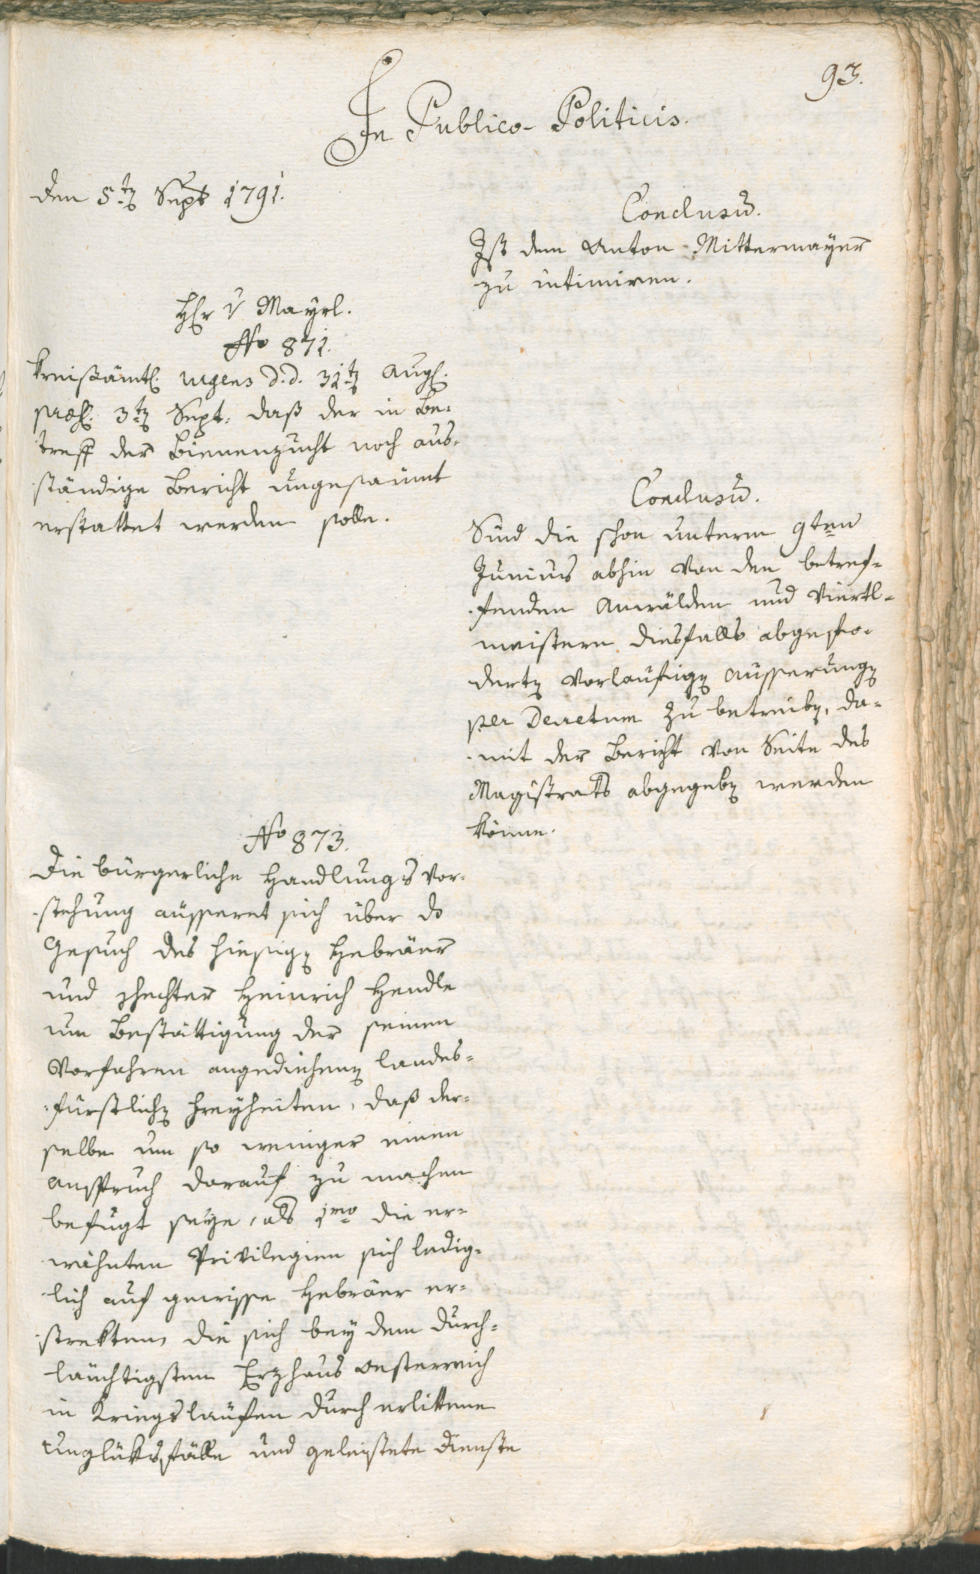 93.
In Publico-Politicis.
den 5tn Sept 1791.
Conclusũ.
Ist dem Anton Mittermayer
zu intimiren.
Hr v Mayrl.
No 871.
Kreißämtl. urgens d.d. 31tn Augl.
præs. 3tn Sept. daß der in Be-
treff der Bienenzucht noch aus-
ständige Bericht ungesäumt
erstattet werden solle.
Conclusũ.
Sind die schon unterm 9ten
Junius abhin von den betref-
fenden Anwälden und Viertl-
meistern diesfalls abgefo-
dertn vorläufign Äusserungn
per Decretum zu betreibn, da-
mit der Bericht von Seite des
Magistrats abgegebn werden
könne.
No 873.
Die bürgerliche Handlungs Vor-
stehung äusseret sich über ds
Gesuch des hiesign Hebräer
und schechter Heinrich Hendle
um Bestättigung der seinen
Vorfahren angediehenn landes-
fürstlichn Freyheiten, daß der-
selbe um so weniger einen
Anspruch darauf zu machen
befugt seye, als 1mo die er-
wähnten Privilegien sich ledig-
lich auf gewisse Hebräer er-
strekten, die sich bey dem durch-
läuchtigsten Erzhaus Oesterreich
in Kriegsläufen durch erlittene
Unglüksfälle und geleistete Dienste